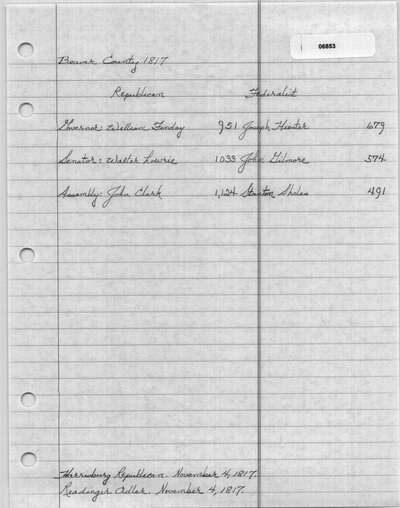 06853
Beaver County 1817
Republican Federalist
Governor: William Finday 951 Joseph Hiester 679
Senator: Walter Lowrie 1033 John Gilmore 574
Assembly: John Clark 1,124 Stanton Sholes 491
Harrisburg Republican. November 4, 1817.
Readinger Adler, November 4, 1817.